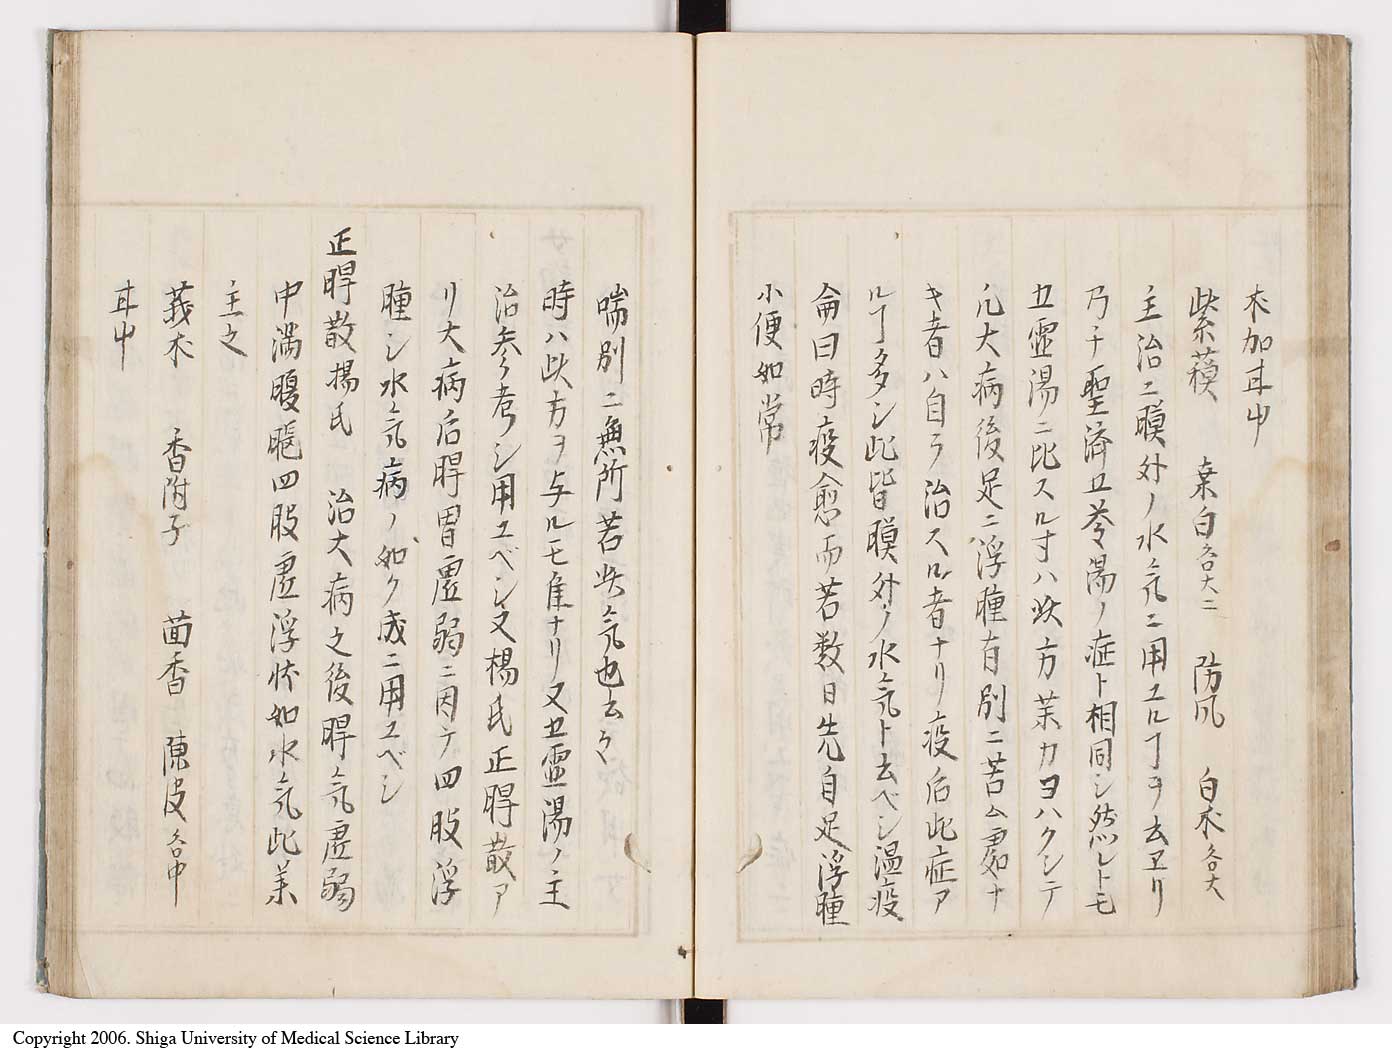 木加耳中
紫蘇 桑白各大二 防風 白木各大
主治ニ膜外ノ水氣ニ用ユルヿヲ云ヱリ
乃チ聖濟五苓湯ノ症ト相同シ然レトモ
五霊湯ニ比スル寸ハ此方茉カヨハクシテ
凡大病後足ニ浮腫有別ニ苦ム処ナ
キ者ハ自ラ治スル者ナリ疫后此症ア
ルヿ多シ此皆膜外ノ水氣ト云ベシ温疫
侖曰時疫愈而若数日先自足浮腫
小便如常
喘別ニ無所苦此氣也云々
時ハ此方ヲ与ルモ隹ナリ又五霊湯ノ主
治参考シ用ユベシ又楊氏正脾散ア
リ大病后脾胃虚弱ニ因テ四肢浮
腫シ水氣病ノ如ク成ニ用ユベシ
正脾散楊氏 治大病之後脾氣虚弱
中満腹脹四肢虚浮状如水氣此茉
主之
莪朮 香附子 茴香 陳皮各中
耳中
Copyright 2006. Shiga University of Medical Science Library